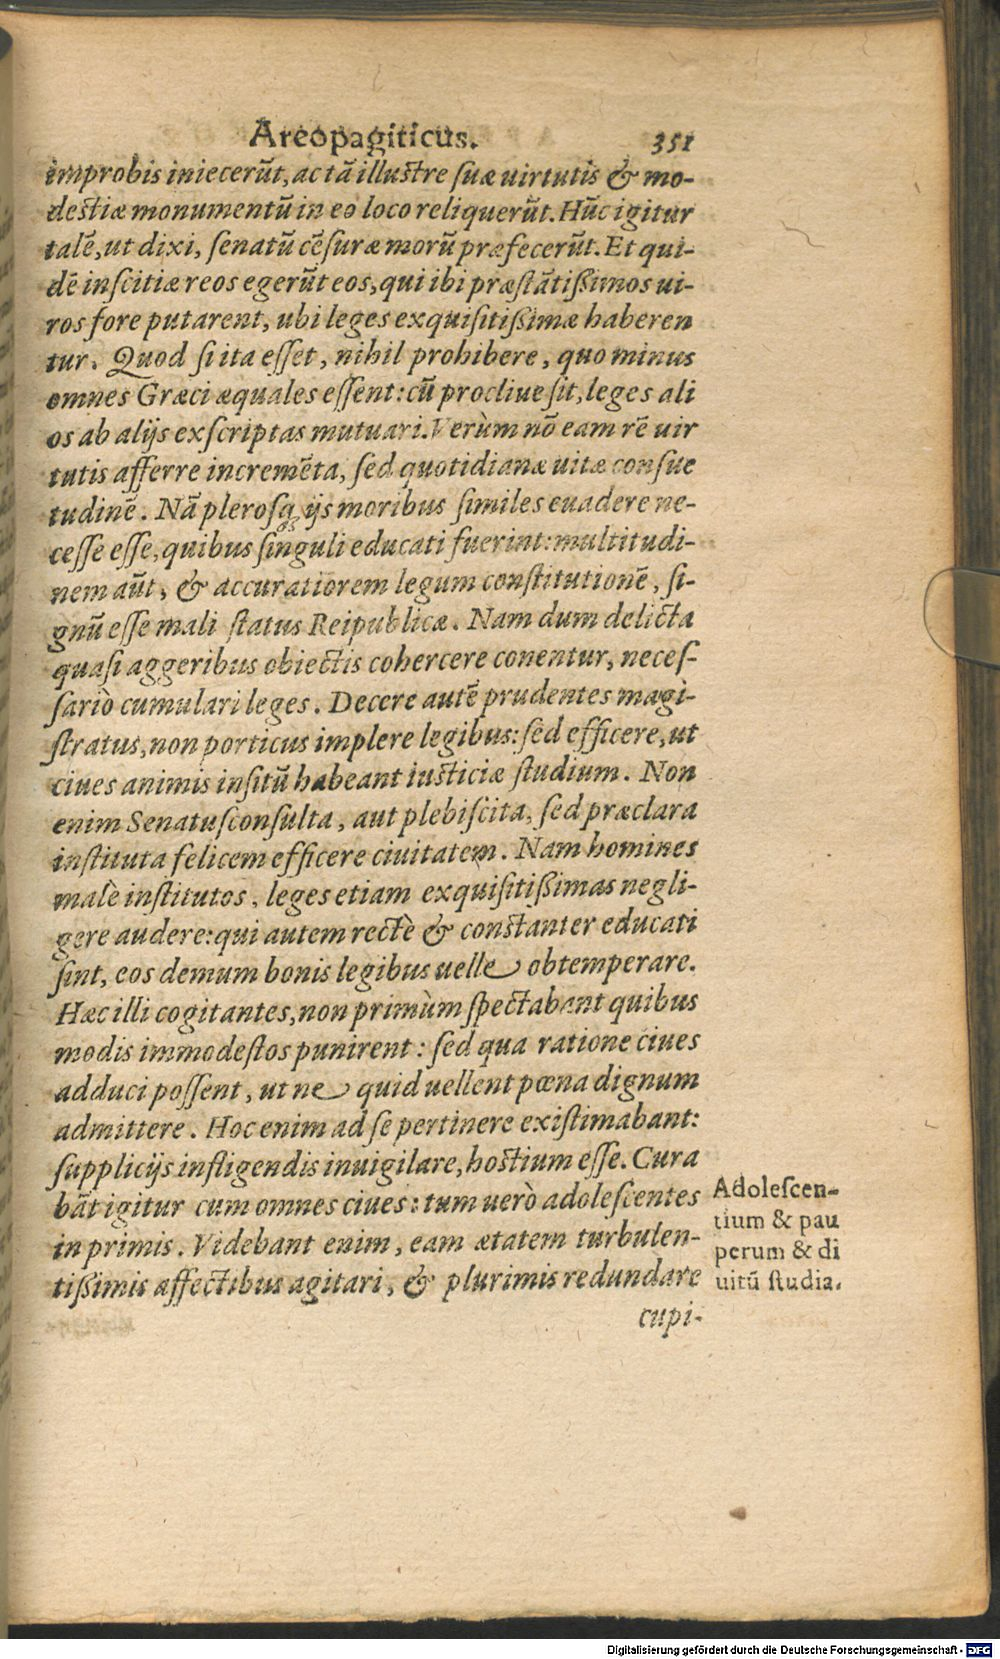 Areopagiticus. 351
improbis iniecerũt, ac tã illustre suæ uirtutis & mo-
destiæ monumentũ in eo loco reliquerũt. Hũc igitur
talẽ, ut dixi, senatũ cẽsuræ morũ præfecerũt. Et qui-
dẽ inscitiæ reos egerũt eos, qui ibi præstãtißimos ui-
ros fore putarent, ubi leges exquisitißimæ haberen
tur. Quod si ita esset, nihil prohibere, quo minus
omnes Græci æquales essent: cũ procliue sit, leges ali
os ab alijs exscriptas mutuari. Verùm nõ eam rẽ uir
tutis afferre incremẽta, sed quotidianæ uitæ consue
tudinẽ. Nã plerosq; ijs moribus similes euadere ne-
cesse esse, quibus singuli educati fuerint: multitudi-
nem aũt, & accuratiorem legum constitutionẽ, si-
gnũ esse mali status Reipublicæ. Nam dum delicta
quasi aggeribus obiectis cohercere conentur, neces-
sariò cumulari leges. Decere autẽ prudentes magi-
stratus, non porticus implere legibus: sed efficere, ut
ciues animis insitũ habeant iusticiæ studium. Non
enim Senatusconsulta, aut plebiscita, sed præclara
instituta felicem efficere ciuitatem. Nam homines
malè institutos, leges etiam exquisitißimas negli-
gere audere: qui autem rectè & constanter educati
sint, eos demum bonis legibus uelle obtemperare.
Hæc illi cogitantes, non primùm spectabant quibus
modis immodestos punirent: sed qua ratione ciues
adduci possent, ut ne quid uellent pœna dignum
admittere. Hoc enim ad se pertinere existimabant:
supplicijs infligendis inuigilare, hostium esse. Cura
bãt igitur cum omnes ciues: tum uerò adolescentes
in primis. Videbant enim, eam ætatem turbulen-
tißimis affectibus agitari, & plurimis redundare
cupi-
Adolescen-
tium & pau
perum & di
uitũ studia.
Digitalisierung gefördert durch die Deutsche Forschungsgemeinschaft - DFG